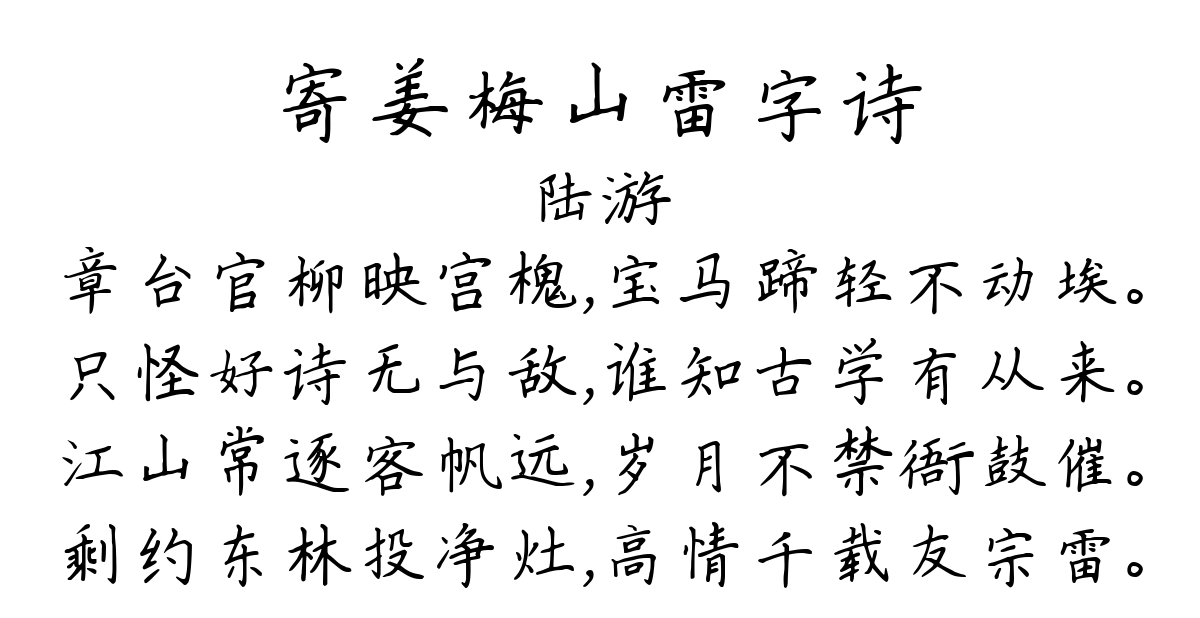 寄姜梅山雷字诗
陆游
章台官柳映宫槐,宝马蹄轻不动埃。
只怪好诗无与敌,谁知古学有从来。
江山常逐客帆远,岁月不禁衙鼓催。
剩约东林投净灶,高情千载友宗雷。